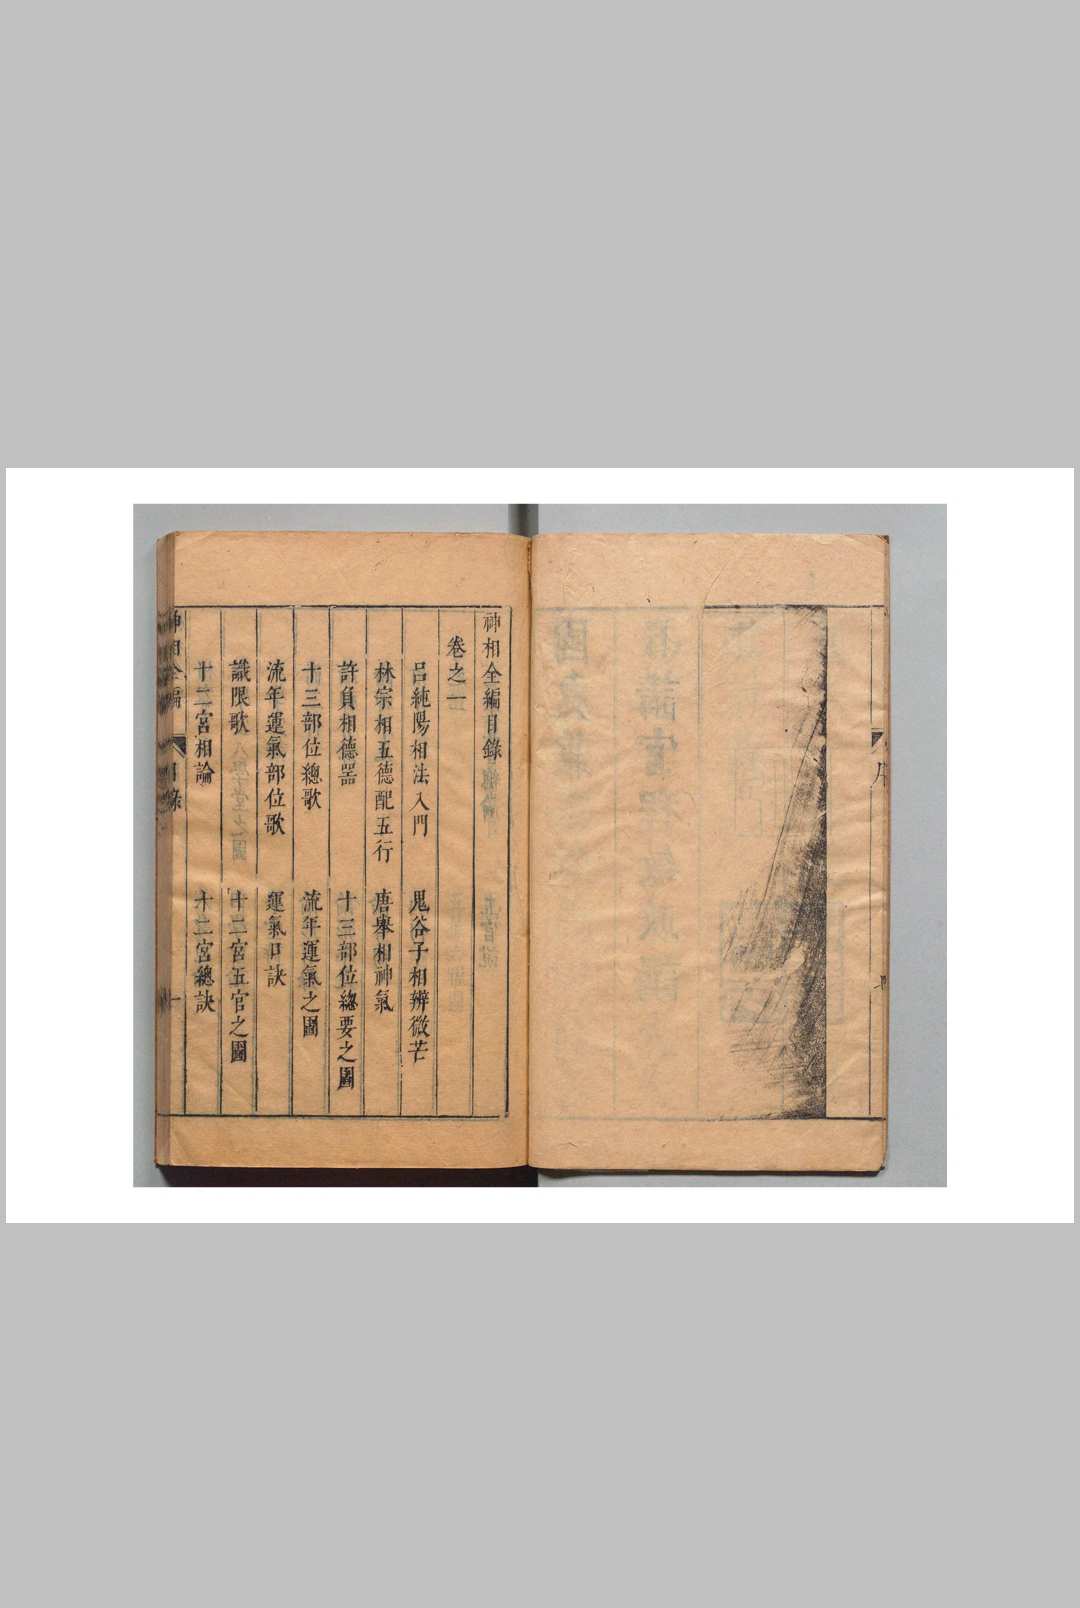 序
神相全編目錄
卷之一
呂純陽相法入門 鬼谷子相辨微芒
林宗相五德配五行 唐舉相神氣
許負相德器 十三部位總要之圖
十三部位總歌 流年運氣之圖
流年運氣部位歌 運氣口訣
識限歌 十二宮五官之圖
十二宮相論 十二宮總訣
神相全編 目錄 一